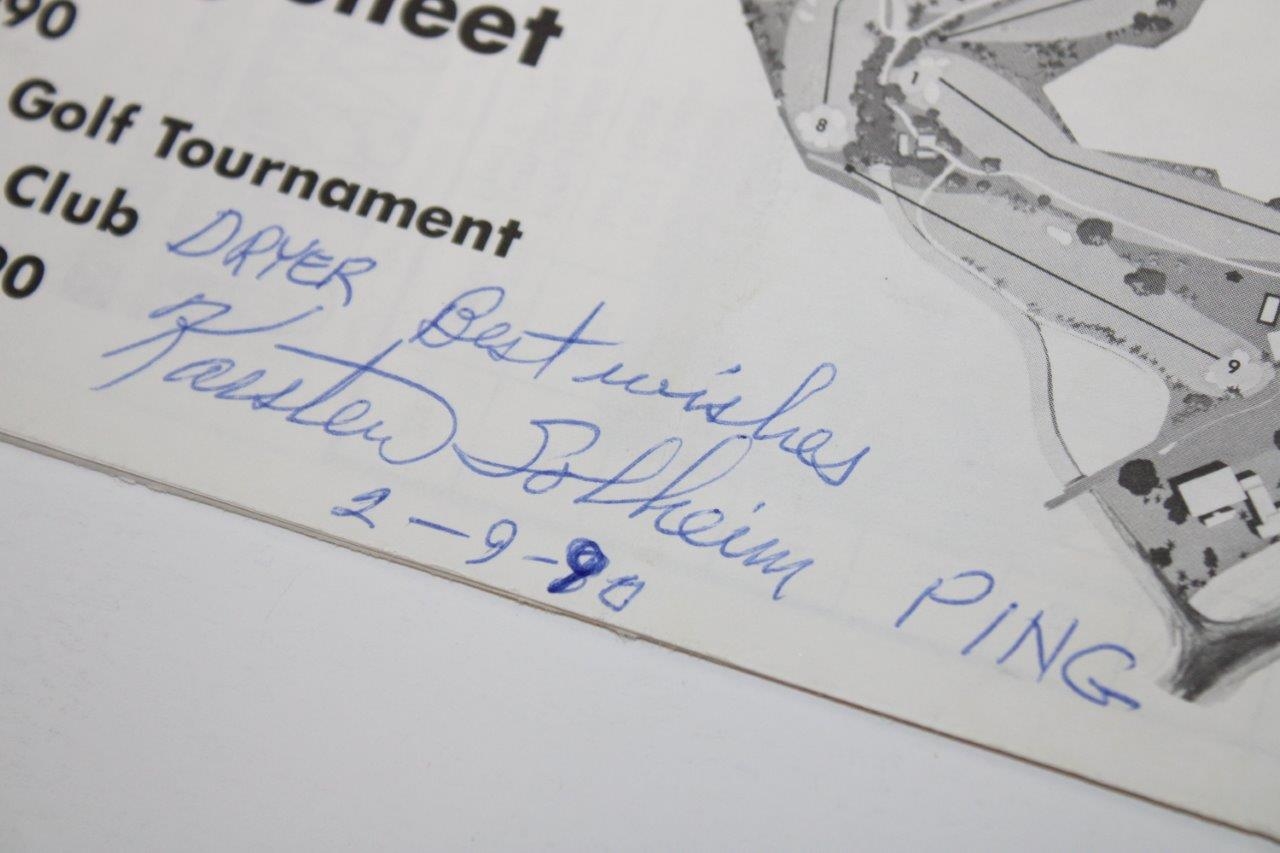 90
heet
Golf Tournament
Club
90
DRYER Best wishes
Karsten Solheim PING
2-9-90
8
1
9